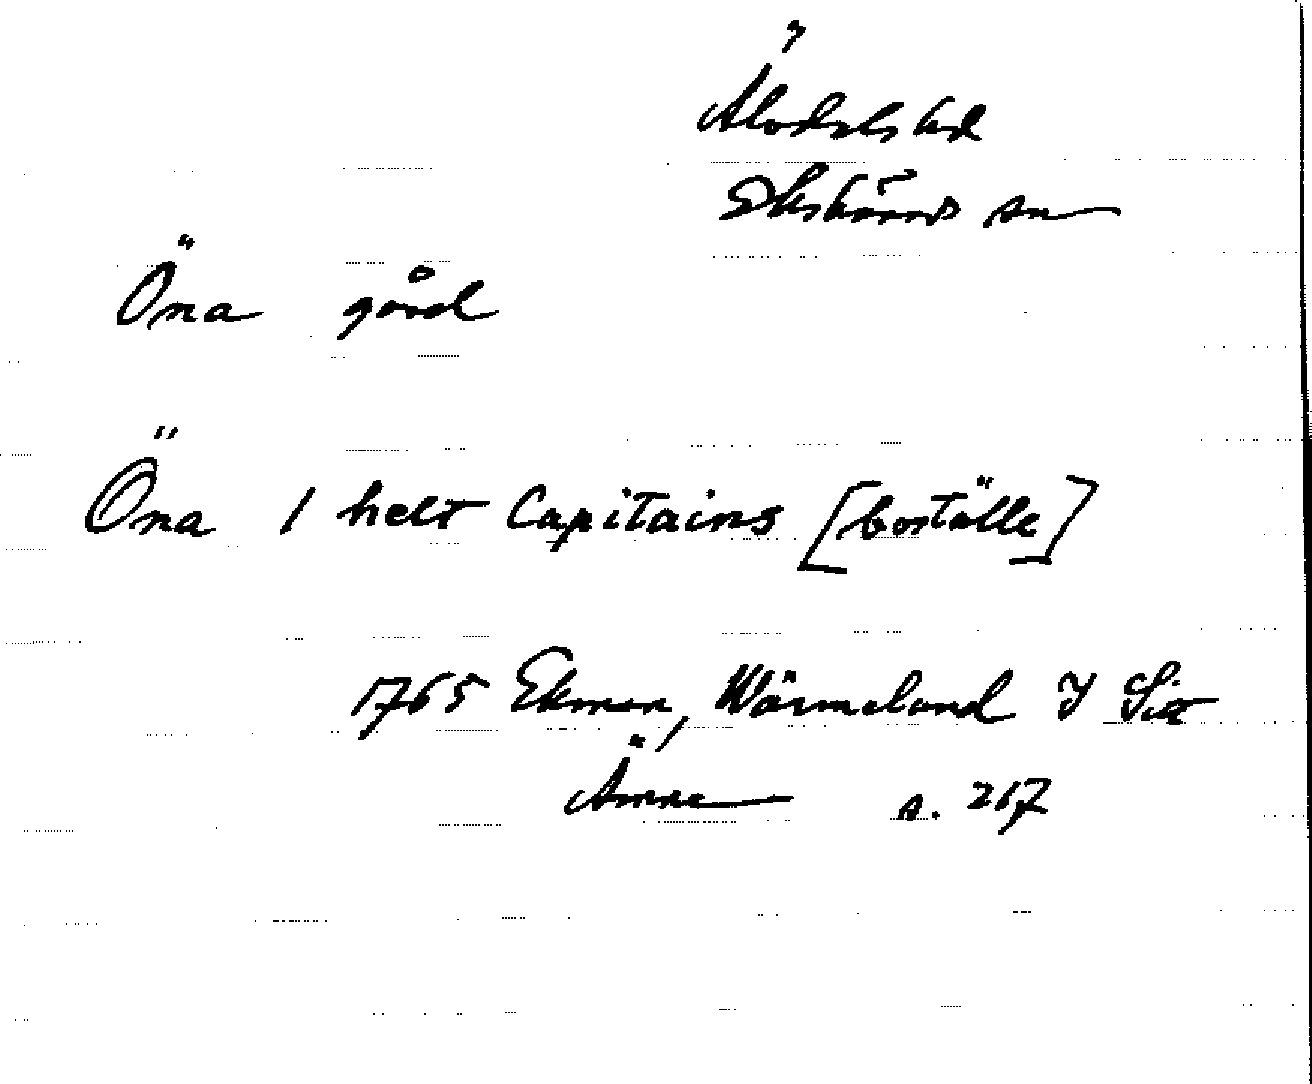 Älvdals hd
Ekshärads sn
Öna gård
Öna 1 helt Capitains [boställe]
1765 Ekman, Wärmeland I Sitt
Ämne s. 267